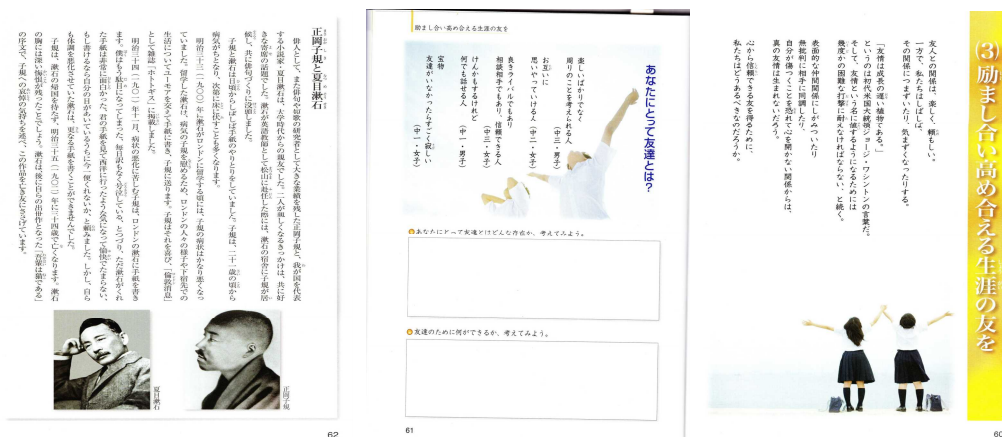 (3)励まし合い高め合える生涯の友を
友人との関係は、楽しく、頼もしい。
一方で、私たちはしばしば、
その関係につまずいたり、気まずくなったりする。
「友情は成長の遅い植物である。」
というのは初代米国大統領ジョージ・ワシントンの言葉だ。
そして、友情という名に値するようになるためには
幾度かの困難な打撃に耐えなければならない、と続く。
表面的な仲間関係にしがみついたり
無批判に相手に同調したり、
自分が傷つくことを恐れて心を開かない関係からは、
真の友情は生まれないだろう。
心から信頼できる友を得るために、
私たちはどうあるべきなのだろうか。
60
励まし合い高め合える生涯の友を
あなたにとって友達とは?
楽しいばかりでなく
周りのことを考えられる人
(中二・男子)
お互いに
思いやっていける人
(中二・女子)
良きライバルでもあり
相談相手でもあり、信頼できる人
けんかもするけれど
何でも話せる人
(中一・男子)
宝物
友達がいなかったらすごく寂しい
(中一・女子)
あなたにとって友達とはどんな存在か、考えてみよう。
友達のために何ができるか、考えてみよう。
61
正岡子規と夏目漱石
俳人として、また俳句や短歌の研究者として大きな業績を残した正岡子規と、我が国を代表
する小説家・夏目漱石は、大学時代からの親友でした。二人が親しくなるきっかけは、共に好
きな寄席の話題でした。漱石が英語教師として松山に赴任した際には、漱石の宿舎に子規が居
候し、共に俳句づくりに没頭しました。
子規と漱石は日頃からしばしば手紙のやりとりをしていました。子規は、二十一歳の頃から
病気がちとなり、次第に床に伏すことも多くなります。
明治三十三(一九〇〇)年に漱石がロンドンに留学する頃には、子規の病状はかなり悪くなっ
ていました。留学した漱石は、病気の子規を慰めるため、ロンドンの人々の様子や下宿先での
生活についてユーモアを交えて手紙に書き、子規に送ります。子規はそれを喜び、「倫敦消息」
として雑誌「ホトトギス」に掲載しました。
明治三十四(一九〇一)年十一月、病状の悪化に苦しむ子規は、ロンドンの漱石に手紙を書き
ます。僕はもうだめになってしまった、毎日訳もなく号泣している、とつづり、ただ漱石がくれ
た手紙は非常に面白かった、君の手紙を見て西洋に行ったような気になって愉快でたまらない、
もし書けるなら自分の目があいているうちに今一便くれないか、と頼みました。しかし、自ら
も体調を悪化させていた漱石は、更なる手紙を書くことができませんでした。
子規は、漱石の帰国を待たず、明治三十五(一九〇二)年に三十四歳で亡くなります。漱石
の胸には深い悔恨が残ったことでしょう。漱石は、後に自らの出世作となった「吾輩は猫である」
の序文で、子規への哀悼の気持ちを述べ、この作品を亡き友にささげています。
正岡子規
夏目漱石
62